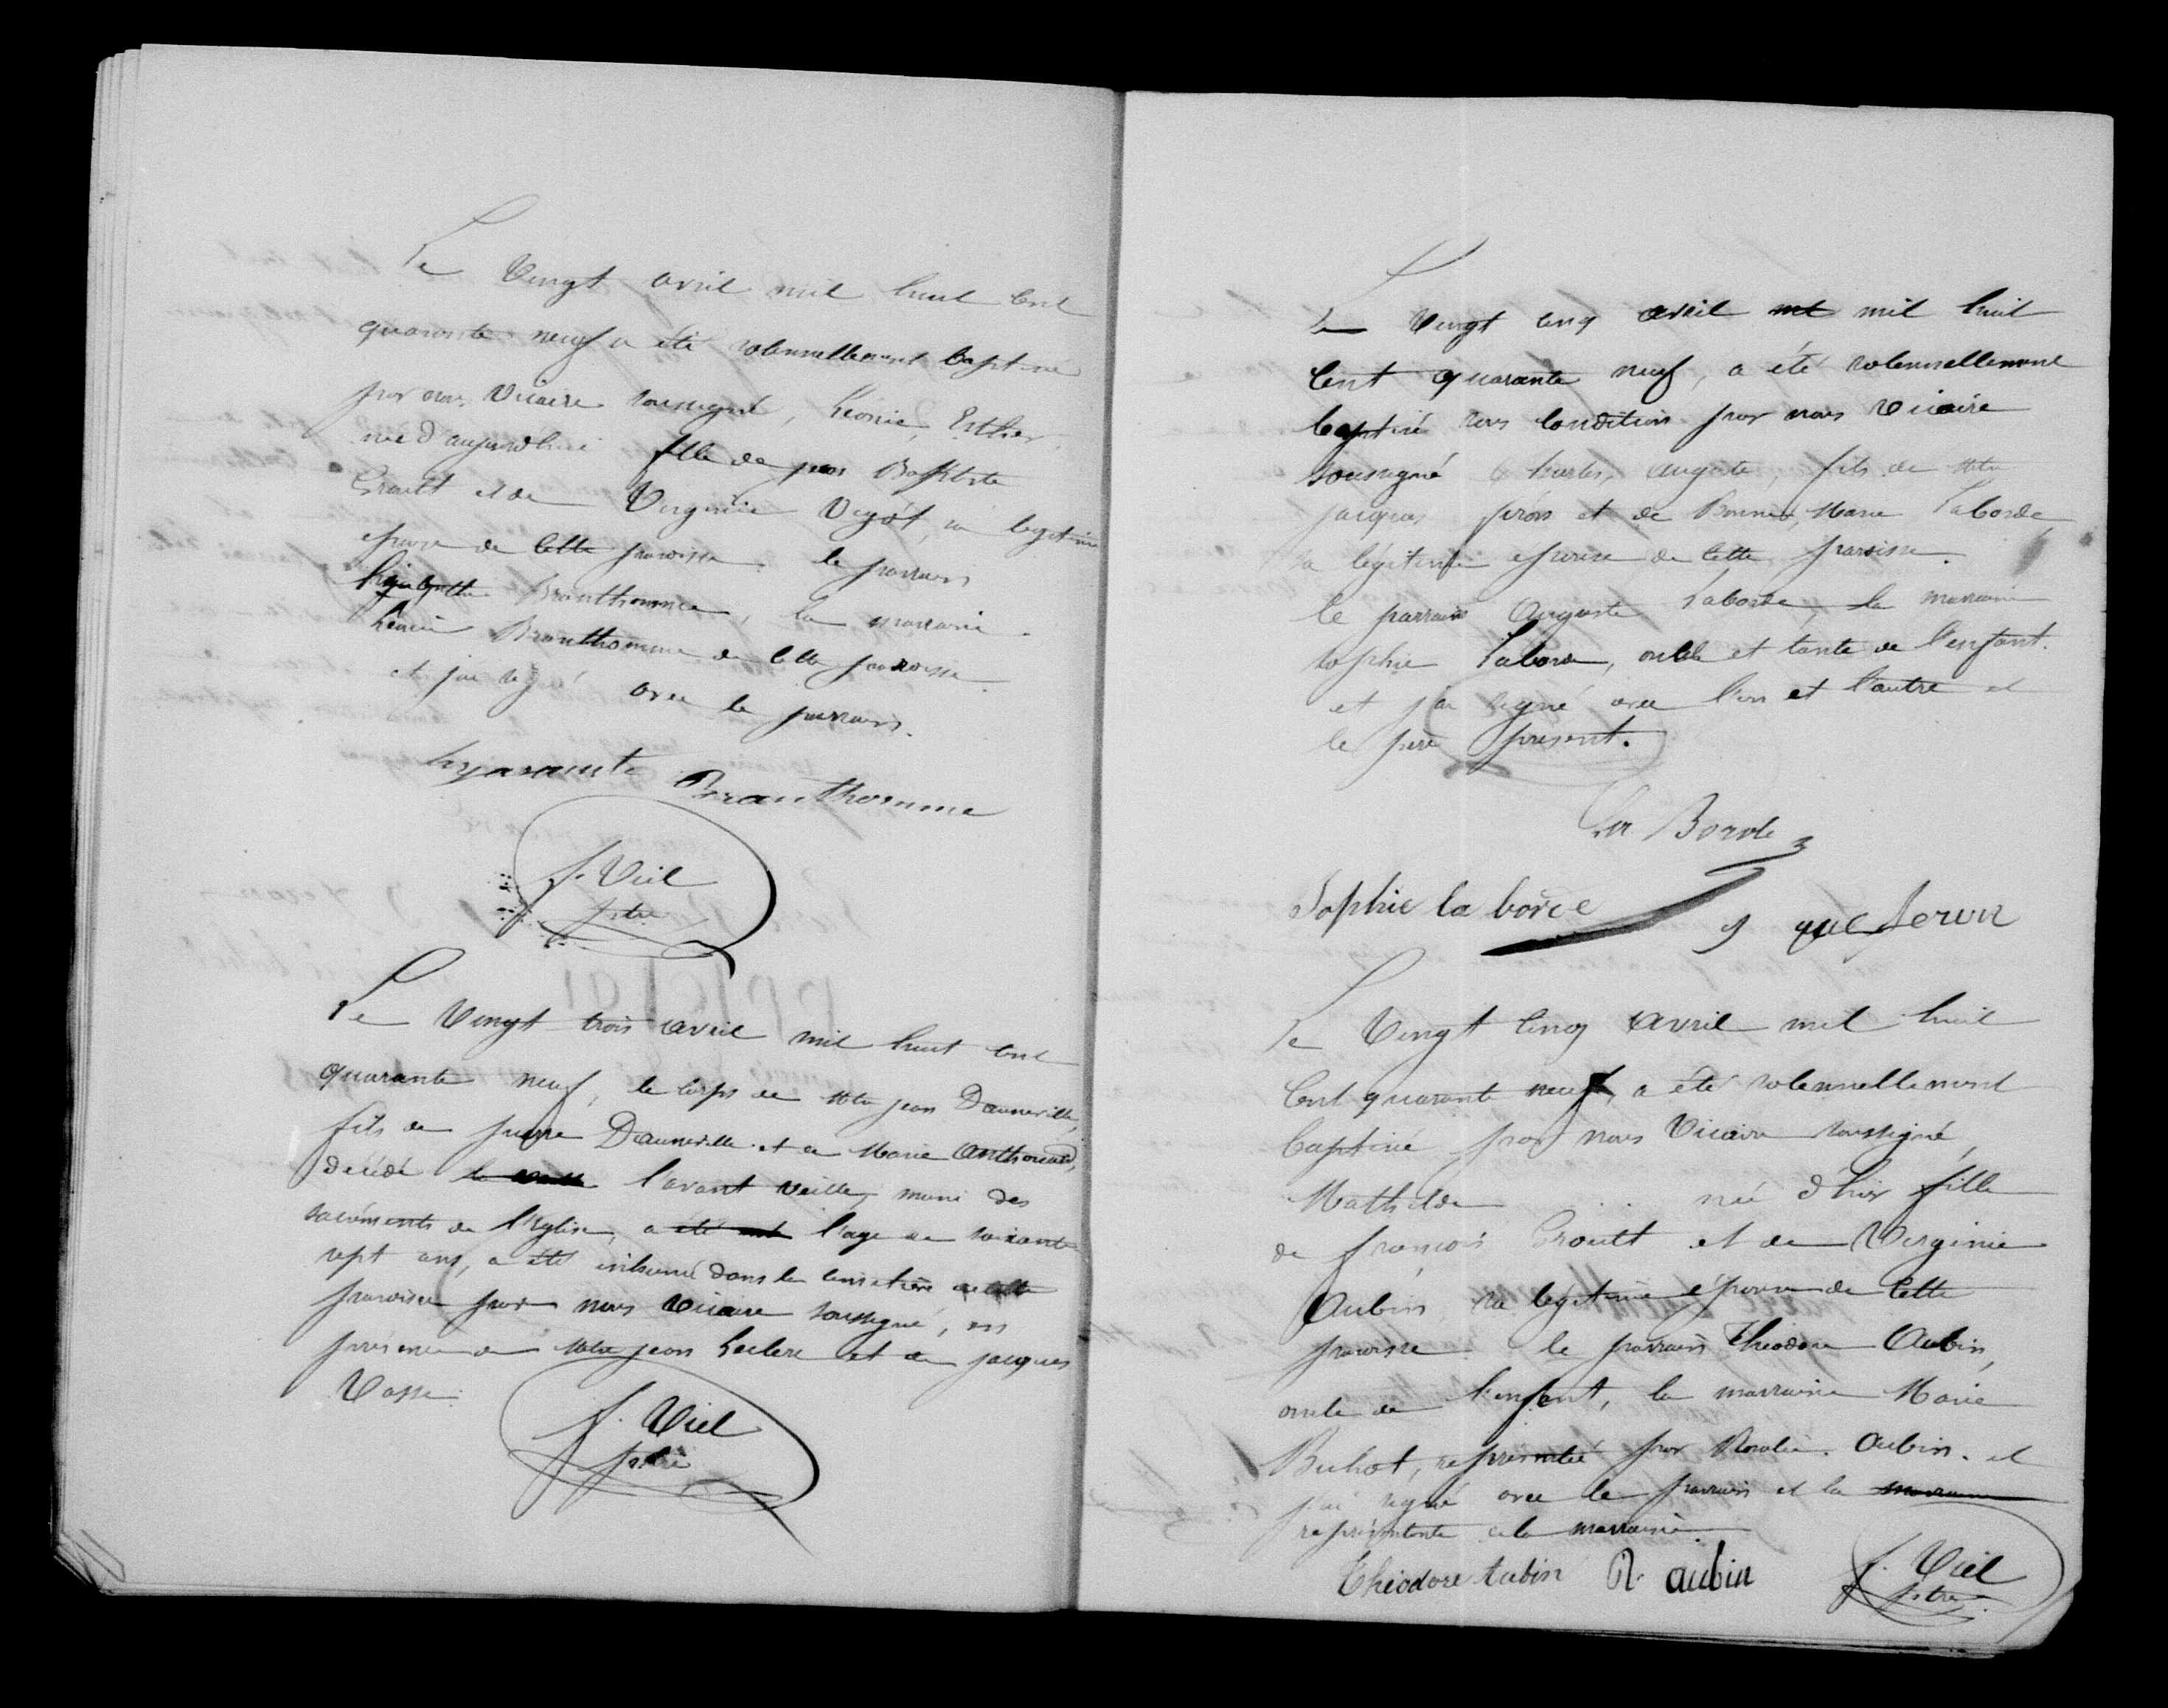 Le Vingt avril mil huit cent
quarante neuf a été solennellement baptisée
par nous Vicaire soussigné, Léonie, Esther
née d'aujourdhui fille de jean Baptiste
Groult et de Virginie sa légitime
épouse de cette paroisse. le parrain
Branthomme, la marraine
Branthomme de cette paroisse
et j'ai signé avec le parrain.
Branthomme
f. Viel
ptre
Le Vingt trois avril mil huit cent
quarante neuf, le corps de jean Danneville,
fils de pierre Danneville et de Marie
décédé l'avant veille, muni des
sacrements de l'Eglise, a l'age de soixante
sept ans, a été inhumé dans le cimetière de cette
paroisse par nous Vicaire soussigné, en
présence de jean Leclerc et de jacques
Vasse.
f. Viel
ptre
Le Vingt cinq avril mil huit
Cent quarante neuf, a été solennellement
baptisé sous condition par nous Vicaire
soussigné Charles, auguste, fils de
jacques et de Marie Laborde,
sa légitime épouse de cette paroisse.
le parrain Auguste Laborde, la marraine
sophie Laborde, oncle et tante de l'enfant.
et j'ai signé avec l'un et l'autre et
le père présent.
La Borde
Sophie la borde
Le Vingt cinq avril mil huit
Cent quarante neuf, a été solennellement
baptisée par nous Vicaire soussigné,
Mathilde née d'hier fille
de françois Groult et de Virginie
Aubin sa légitime épouse de cette
paroisse le parrain Théodore Aubin,
oncle de l'enfant, la marraine Marie
Buhot, représentée par Rosalie Aubin. et
j'ai signé avec le parrain et la marraine
représentante de la marraine.
Théodore Aubin R. aubin f. Viel
ptre